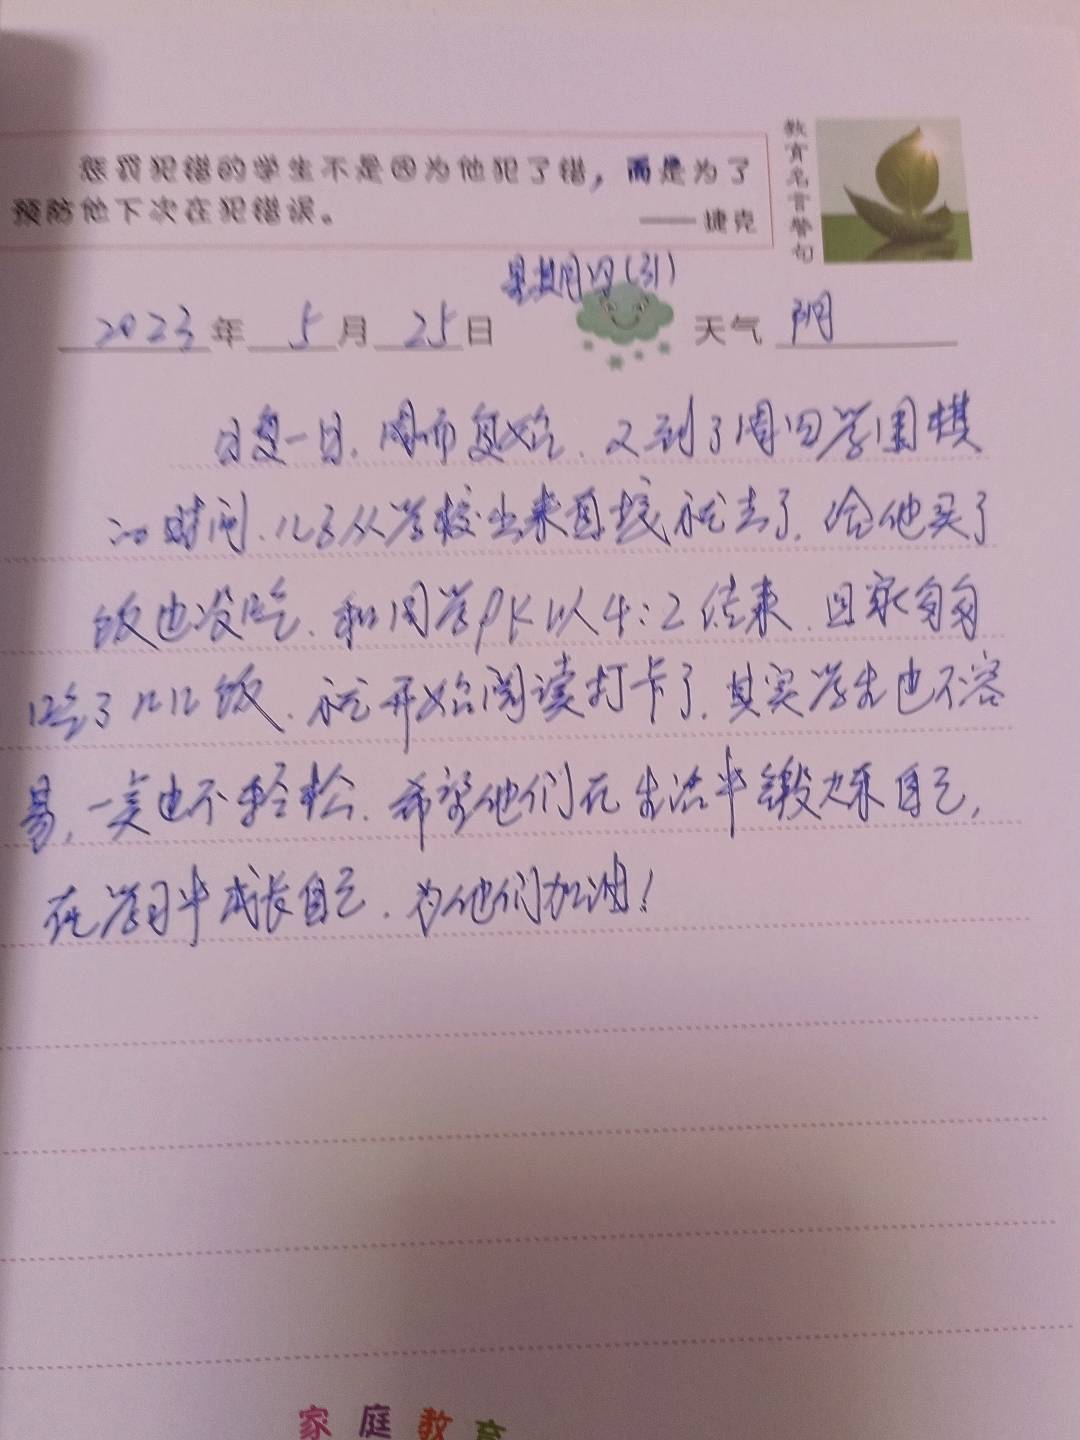 惩罚犯错的学生不是因为他犯了错，而是为了
预防他下次在犯错误。 ——捷克
教育名言警句
星期四(31)
2023年 5月 25日 天气 阴
日复一日、周而复始、又到了周四学围棋
的时间、儿子从学校出来直接就去了，给他买了
饭也没吃、和同学PK以4:2结束、回家匆匆
吃了几口饭、就开始阅读打卡了，其实学生也不容
易，一点也不轻松、希望他们在生活中锻炼自己，
在学习中成长自己、为他们加油！
家庭教育